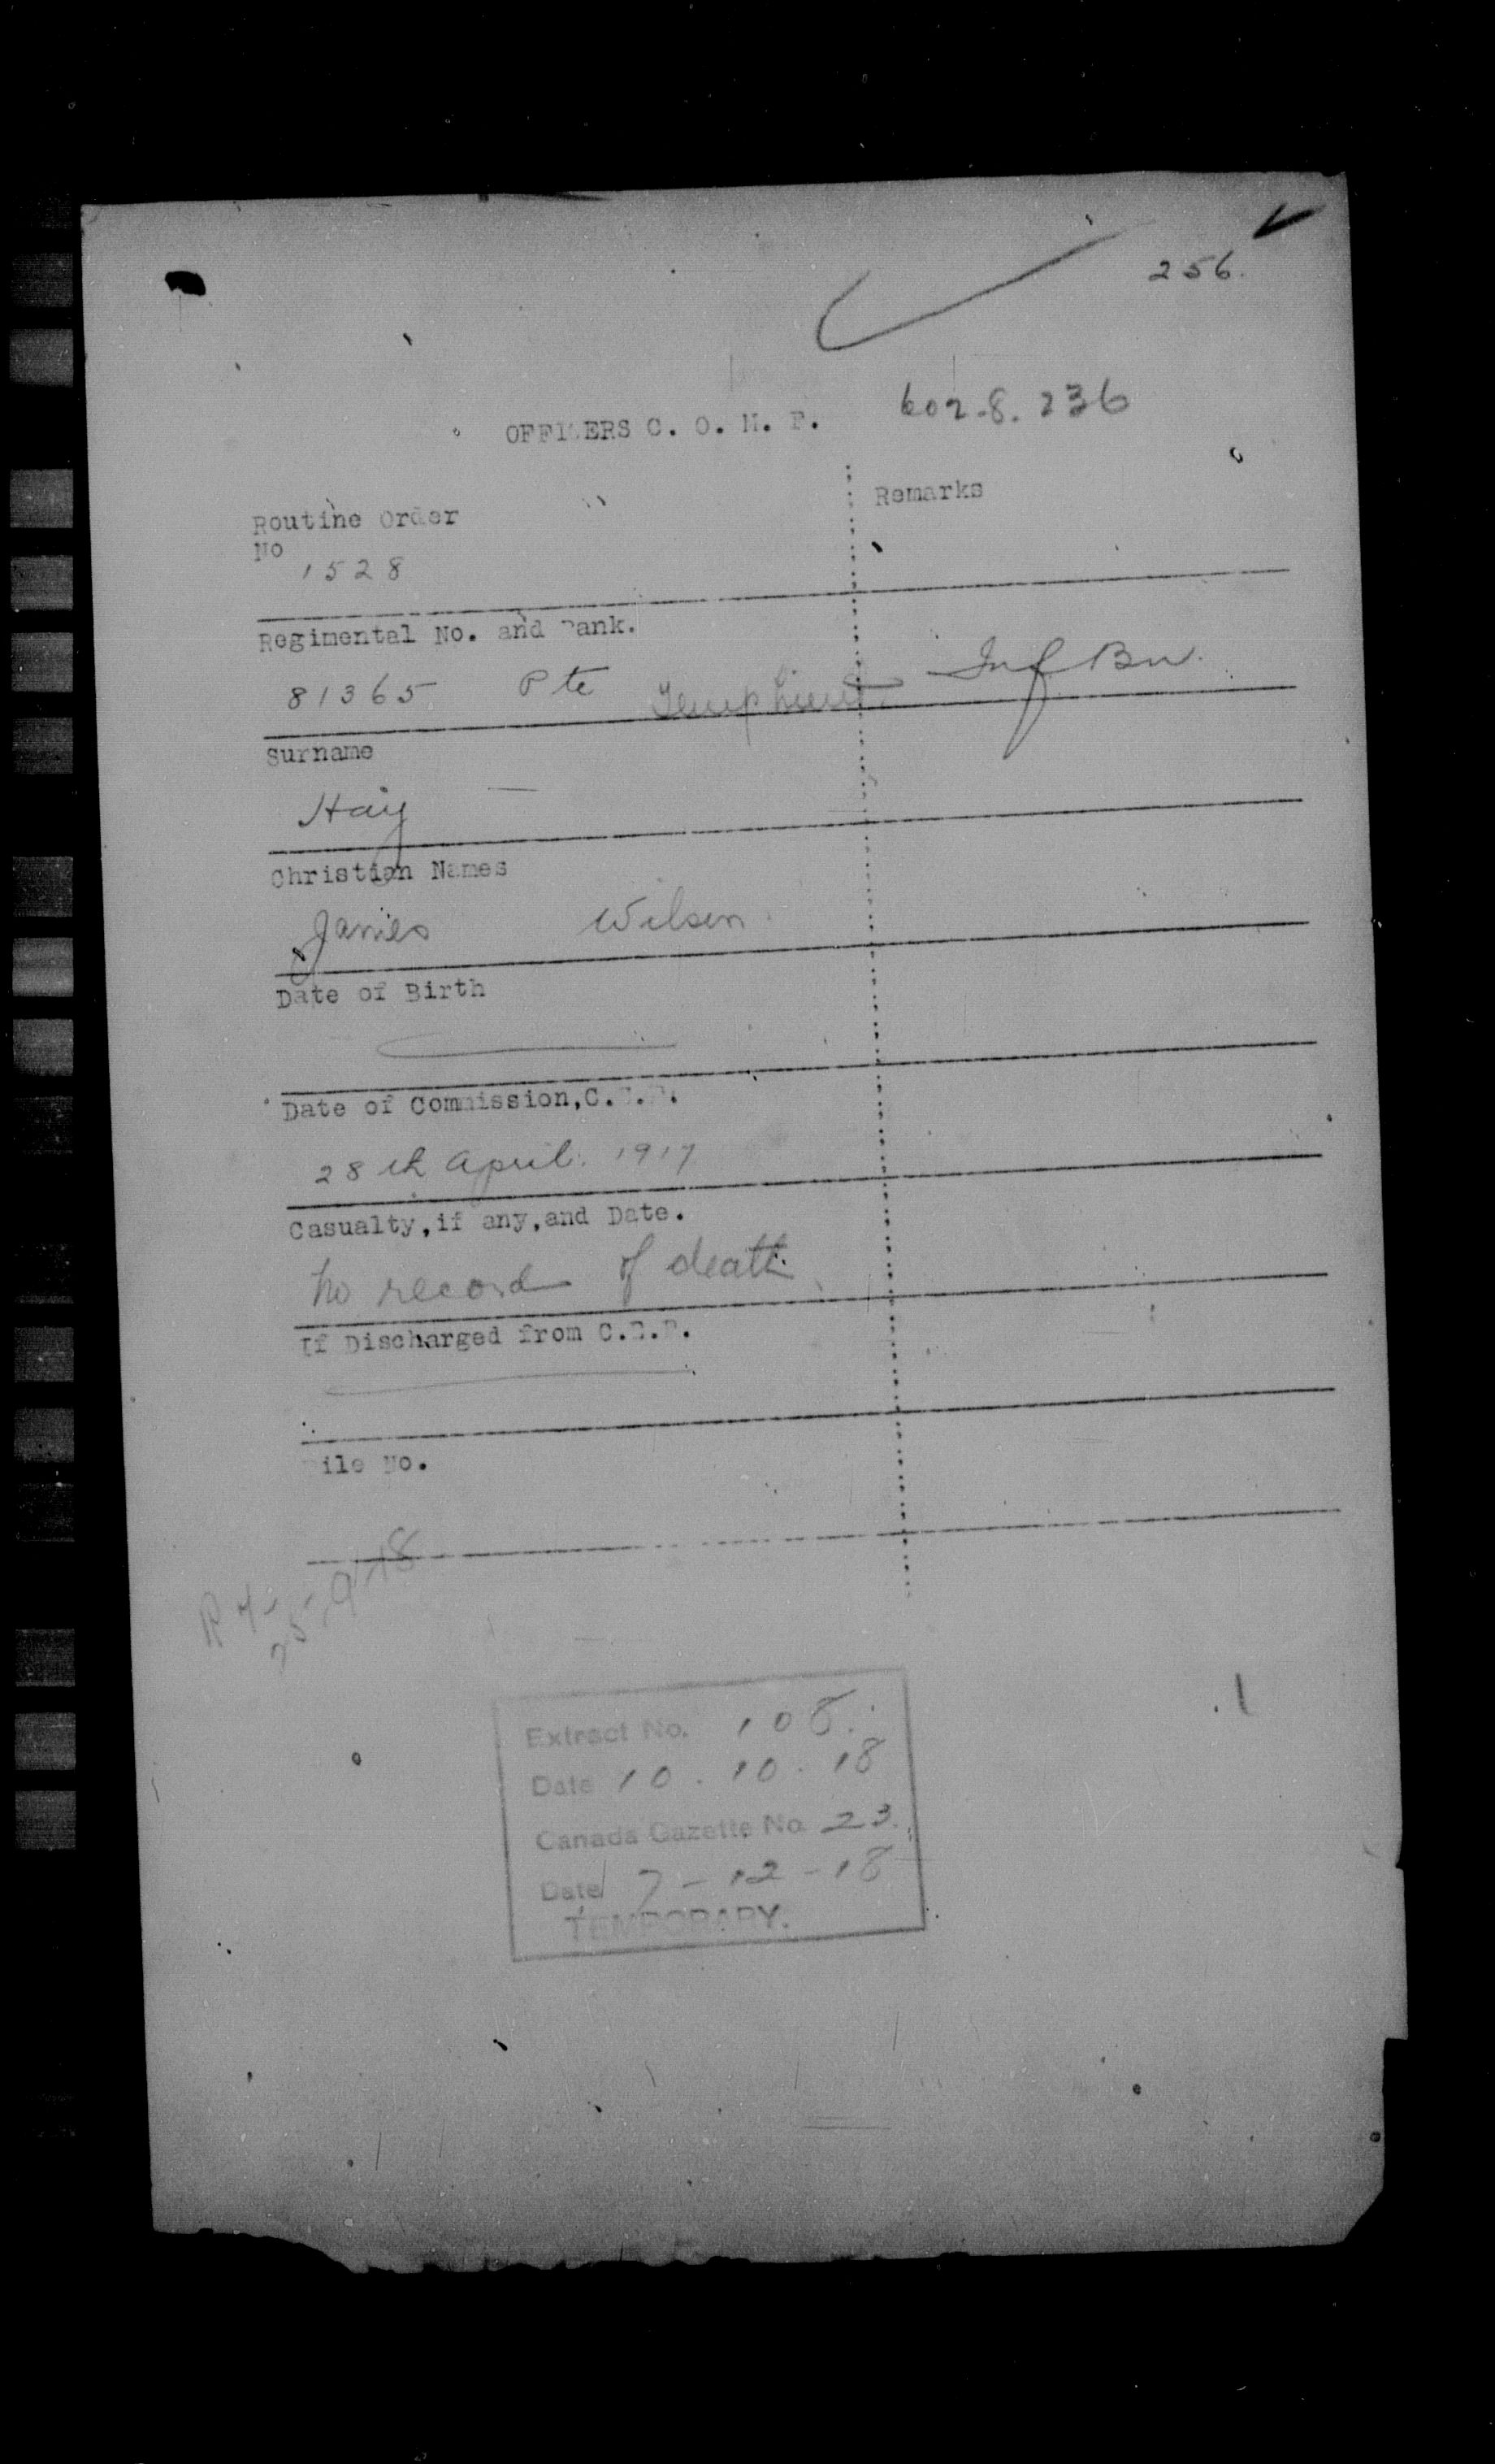 256.
602-8.236
OFFICERS C. O. M. F.
Remarks
Routine Order
No
1528
Regimental No. and Rank.
81365 Pte Temp Lieut. Inf Bn.
Surname
Hay
Christian Names
James Wilson
Date of Birth
Date of Commission, C.E.F.
28th April. 1917
Casualty, if any, and Date.
No record of death.
If Discharged from C.E.F.
File No.
25-9-18
Extract No. 108.
Date 10.10.18
Canada Gazette No. 23.
Date 7-12-18
TEMPORARY.